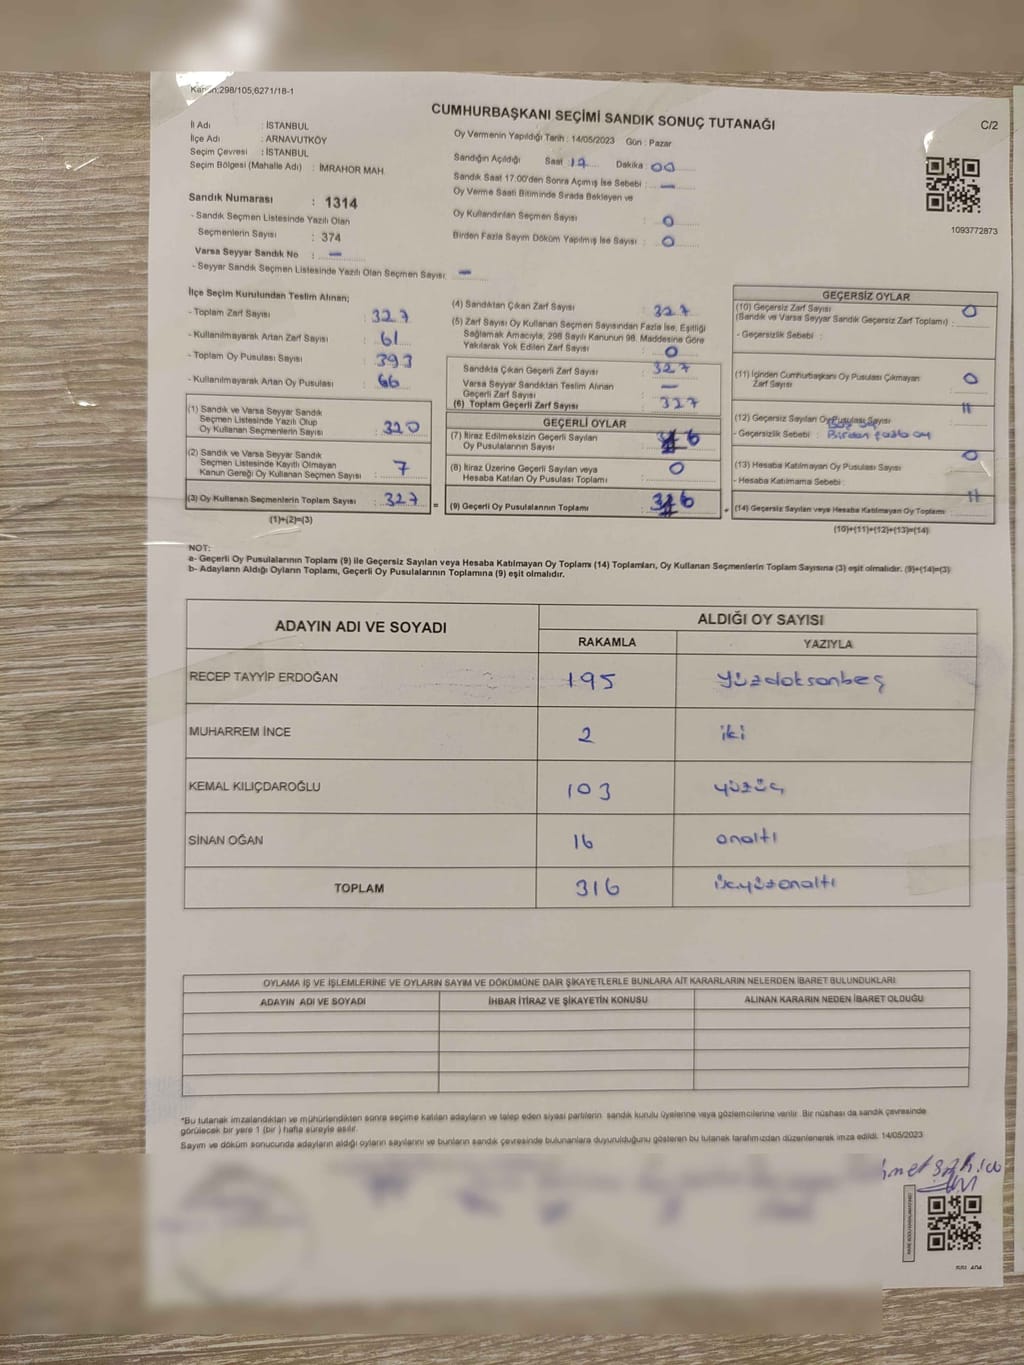 Kanun:298/105;6271/18-1
CUMHURBAŞKANI SEÇİMİ SANDIK SONUÇ TUTANAĞI
C/2
İl Adı : İSTANBUL
İlçe Adı : ARNAVUTKÖY
Seçim Çevresi : İSTANBUL
Seçim Bölgesi (Mahalle Adı) : İMRAHOR MAH.
Sandık Numarası : 1314
- Sandık Seçmen Listesinde Yazılı Olan
Seçmenlerin Sayısı : 374
Varsa Seyyar Sandık No : —
- Seyyar Sandık Seçmen Listesinde Yazılı Olan Seçmen Sayısı: —
Oy Vermenin Yapıldığı Tarih : 14/05/2023 Gün : Pazar
Sandığın Açıldığı Saat : 17 Dakika : 00
Sandık Saat 17:00'den Sonra Açımış İse Sebebi : —
Oy Verme Saati Bitiminde Sırada Bekleyen ve
Oy Kullandırılan Seçmen Sayısı : 0
Birden Fazla Sayım Döküm Yapılmış İse Sayısı : 0
1093772873
İlçe Seçim Kurulundan Teslim Alınan;
- Toplam Zarf Sayısı : 327
- Kullanılmayarak Artan Zarf Sayısı : 61
- Toplam Oy Pusulası Sayısı : 393
- Kullanılmayarak Artan Oy Pusulası : 66
(1) Sandık ve Varsa Seyyar Sandık
Seçmen Listesinde Yazılı Olup
Oy Kullanan Seçmenlerin Sayısı : 320
(2) Sandık ve Varsa Seyyar Sandık
Seçmen Listesinde Kayıtlı Olmayan
Kanun Gereği Oy Kullanan Seçmen Sayısı : 7
(3) Oy Kullanan Seçmenlerin Toplam Sayısı : 327
(1)+(2)=(3)
(4) Sandıktan Çıkan Zarf Sayısı : 327
(5) Zarf Sayısı Oy Kullanan Seçmen Sayısından Fazla İse, Eşitliği
Sağlamak Amacıyla, 298 Sayılı Kanunun 98. Maddesine Göre
Yakılarak Yok Edilen Zarf Sayısı : 0
Sandıkta Çıkan Geçerli Zarf Sayısı : 327
Varsa Seyyar Sandıktan Teslim Alınan
Geçerli Zarf Sayısı : —
(6) Toplam Geçerli Zarf Sayısı : 327
GEÇERLİ OYLAR
(7) İtiraz Edilmeksizin Geçerli Sayılan
Oy Pusulalarının Sayısı :
(8) İtiraz Üzerine Geçerli Sayılan veya
Hesaba Katılan Oy Pusulası Toplamı : 0
(9) Geçerli Oy Pusulalarının Toplamı : 316
GEÇERSİZ OYLAR
(10) Geçersiz Zarf Sayısı 0
(Sandık ve Varsa Seyyar Sandık Geçersiz Zarf Toplamı) :
- Geçersizlik Sebebi :
(11) İçinden Cumhurbaşkanı Oy Pusulası Çıkmayan
Zarf Sayısı 0
11
(12) Geçersiz Sayılan Oy Pusulası Sayısı
- Geçersizlik Sebebi : Birden fazla oy
(13) Hesaba Katılmayan Oy Pusulası Sayısı 0
- Hesaba Katılmama Sebebi :
(14) Geçersiz Sayılan veya Hesaba Katılmayan Oy Toplamı : 11
(10)+(11)+(12)+(13)=(14)
NOT:
a- Geçerli Oy Pusulalarının Toplamı (9) ile Geçersiz Sayılan veya Hesaba Katılmayan Oy Toplamı (14) Toplamları, Oy Kullanan Seçmenlerin Toplam Sayısına (3) eşit olmalıdır. (9)+(14)=(3)
b- Adayların Aldığı Oyların Toplamı, Geçerli Oy Pusulalarının Toplamına (9) eşit olmalıdır.
ADAYIN ADI VE SOYADI
ALDIĞI OY SAYISI
RAKAMLA YAZIYLA
RECEP TAYYİP ERDOĞAN 195 yüzdoksanbeş
MUHARREM İNCE 2 iki
KEMAL KILIÇDAROĞLU 103 yüzüç
SİNAN OĞAN 16 onaltı
TOPLAM 316 üçyüzonaltı
OYLAMA İŞ VE İŞLEMLERİNE VE OYLARIN SAYIM VE DÖKÜMÜNE DAİR ŞİKAYETLERLE BUNLARA AİT KARARLARIN NELERDEN İBARET BULUNDUKLARI
ADAYIN ADI VE SOYADI İHBAR İTİRAZ VE ŞİKAYETİN KONUSU ALINAN KARARIN NEDEN İBARET OLDUĞU
*Bu tutanak imzalandıktan ve mühürlendikten sonra seçime katılan adayların ve talep eden siyasi partilerin sandık kurulu üyelerine veya gözlemcilerine verilir. Bir nüshası da sandık çevresinde
görülecek bir yere 1 (bir) hafta süreyle asılır.
Sayım ve döküm sonucunda adayların aldığı oyların sayılarını ve bunların sandık çevresinde bulunanlara duyurulduğunu gösteren bu tutanak tarafımızdan düzenlenerek imza edildi. 14/05/2023